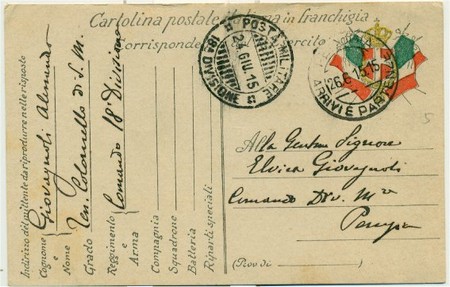 Cartolina postale italiana in franchigia
Corrispondenza esercito
POSTA MILITARE
24 GIU. 15
18ª DIVISIONE
26.6.15.15
ARRIVI E PARTENZE
Indirizzo del mittente da riprodurre nella risposta
Cognome e Nome Giovagnoli Alessandro
Grado Ten. Colonnello di S. M.
Reggimento e Arma Comando 18ª Divisione
Compagnia
Squadrone
Batteria
Riparti speciali
Alla Gentma Signora
Elvira Giovagnoli
Comando Div. Mre
(Prov di